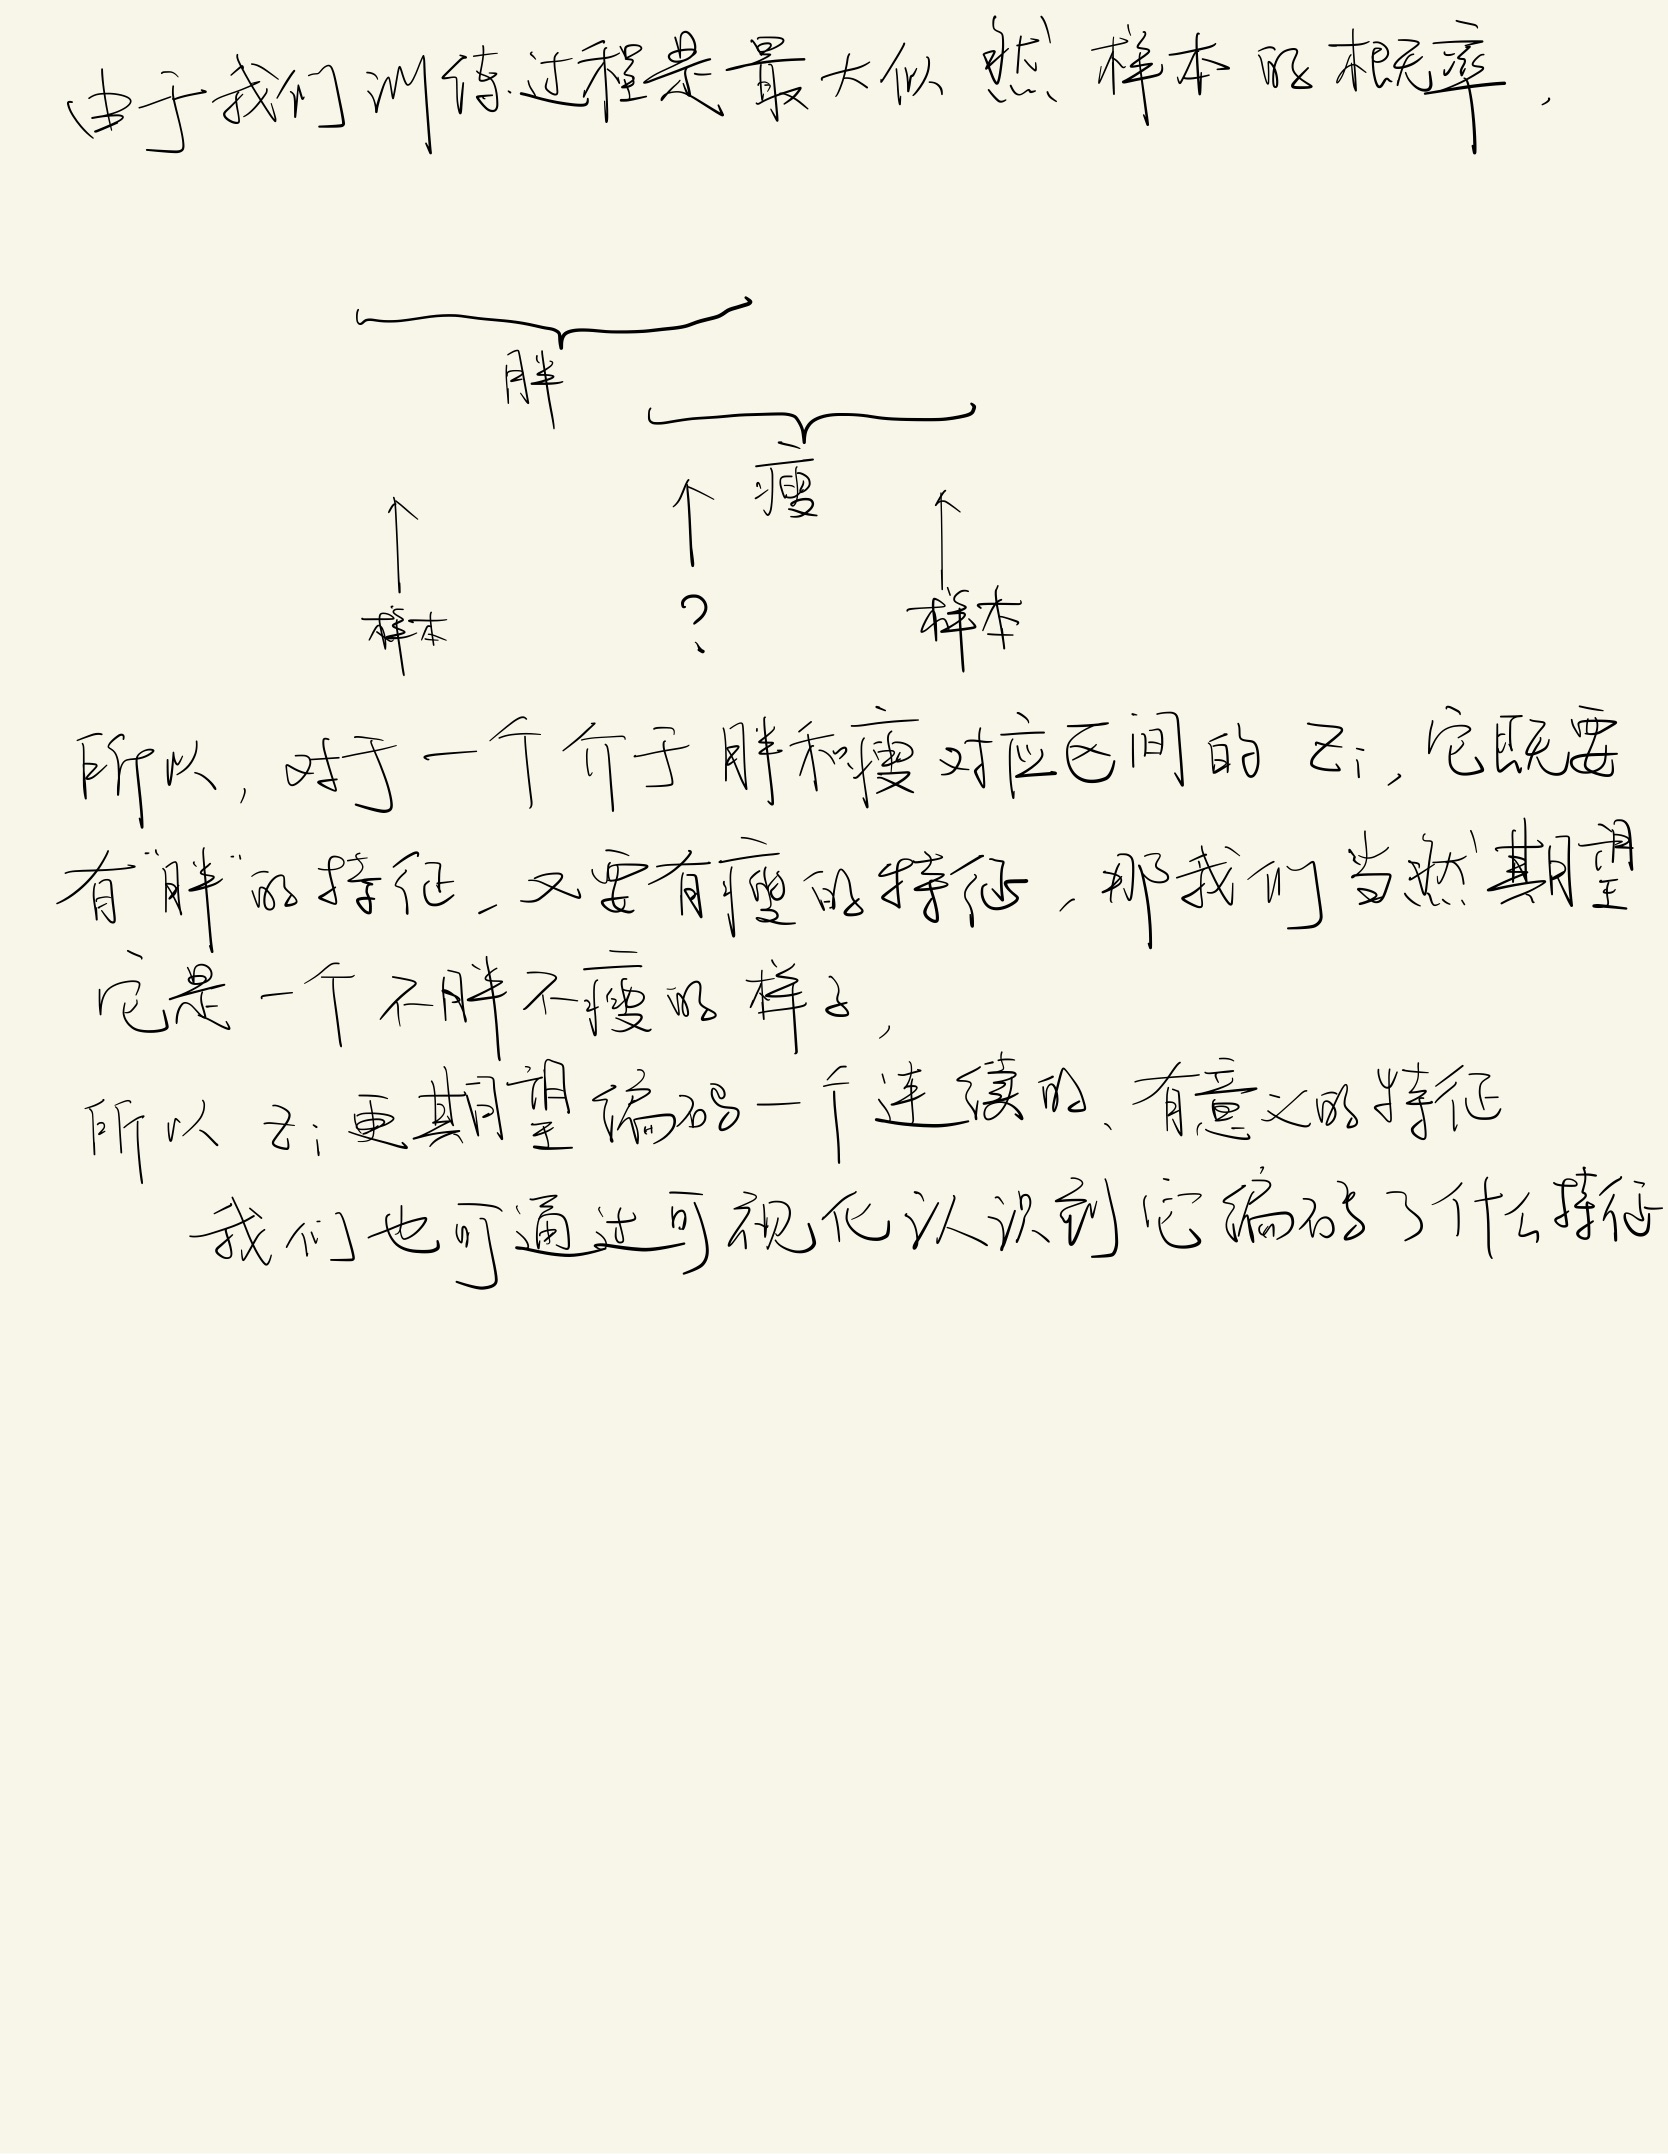 由于我们训练过程是最大似然样本的概率,
胖
瘦
样本 ? 样本
所以,对于一个介于胖和瘦对应区间的 Zi,它既要
有"胖"的特征,又要有瘦的特征,那我们当然期望
它是一个不胖不瘦的样子,
所以 Zi 更期望编码一个连续的、有意义的特征
我们也可通过可视化认识到它编码了什么特征